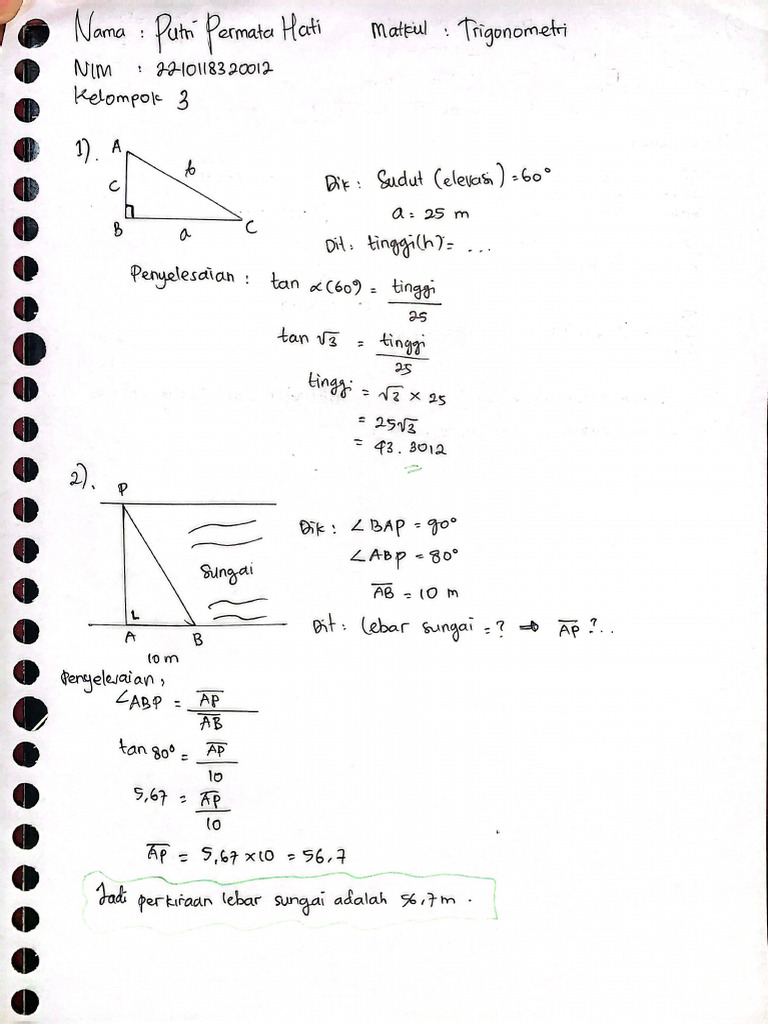 Nama : Putri Permata Hati Matkul : Trigonometri
NIM : 2210118320012
Kelompok 3
1). A
b
c
B a C
Dik : Sudut (elevasi) = 60°
a = 25 m
Dit : tinggi (h) = ...
Penyelesaian : tan α (60°) = tinggi / 25
tan √3 = tinggi / 25
tinggi = √3 × 25
= 25√3
= 43.3012
2). P
Sungai
A B
10 m
Dik : ∠BAP = 90°
∠ABP = 80°
AB = 10 m
Dit : Lebar sungai = ? ⇒ AP ? ..
Penyelesaian,
∠ABP = AP / AB
tan 80° = AP / 10
5,67 = AP / 10
AP = 5,67 × 10 = 56,7
Jadi perkiraan lebar sungai adalah 56,7 m .